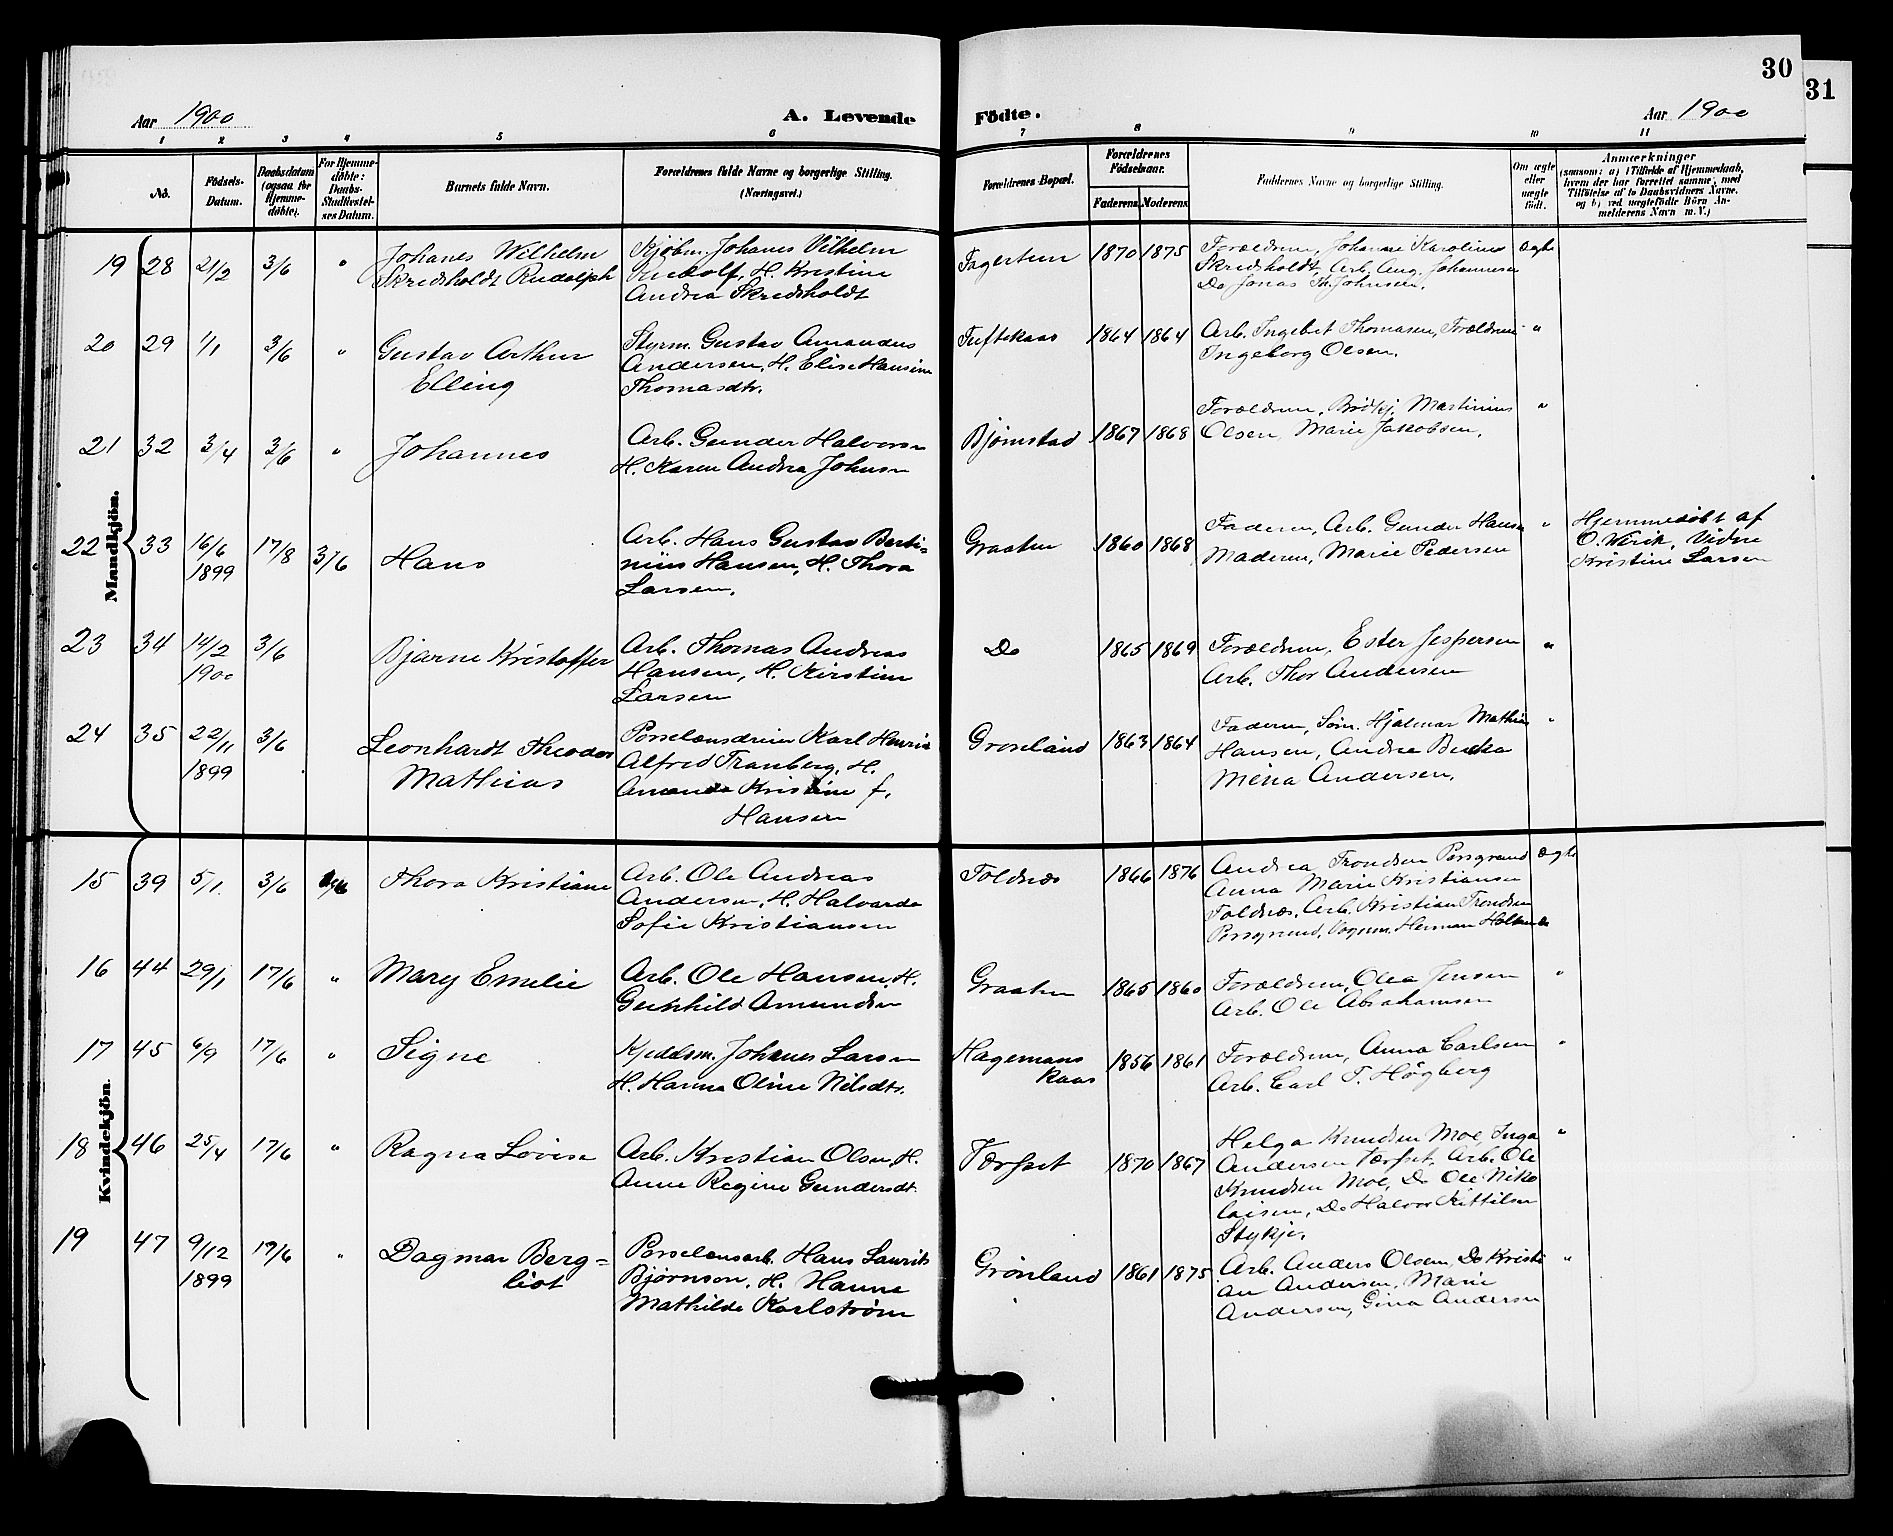 30
31
Aar 1900
A. Levende
Födte.
Aar 1900
1 2 3 4 5 6 7 8 9 10 11
No.
Födsels-
Datum.
Daabsdatum
(ogsaa for
Hjemme-
döbte).
For Hjemme-
döbte:
Daabs-
Stadfæstel-
ses Datum.
Barnets fulde Navn.
Forældrenes fulde Navne og borgerlige Stilling.
(Næringsvei.)
Forældrenes Bopæl.
Forældrenes
Födselsaar.
Faderens Moderens
Faddernes Navne og borgerlige Stilling.
Om ægte
eller
uægte
födt.
Anmærkninger
(saasom: a) i Tilfælde af Hjemmedaab,
hvem der har forrettet samme, med
Tilföielse af to Daabsvidners Navne.
og b) ved uægtefödte Börn An-
melderens Navn m. V.)
Mandkjön.
19 28 21/2 3/6 "
Johanes Wilhelm
Skredsholdt Rudolph
Kjøbm. Johanes Vilhelm
Rudolf, H. Kristine
Andrea Skredsholdt
Fagertun 1870 1875
Forældrene, Johanne Karoline
Skredsholdt, Arb. Aug. Johannesen
Do Jonas Th. Johnsen.
Ægte
20 29 1/1 3/6 "
Gustav Arthur
Elling
Styrm. Gustav Amandus
Andersen, H. Elise Hansine
Thomasdtr.
Tuftekaas 1864 1864
Arb. Ingebret Thomasen, Forældrene
Ingeborg Olsen.
"
21 32 3/4 3/6 "
Johannes
Arb. Gunder Halvorsen
H. Karen Andrea Johnsen
Bjørnstad 1867 1868
Forældrene, Brødkj. Martinius
Olsen, Marie Jakobsen.
"
22 33 16/6 17/8 3/6
1899
Hans
Arb. Hans Gustav Berti-
nius Hansen, H. Thora
Larsen.
Graaten 1860 1868
Faderen, Arb. Gunder Hansen
Moderen, Marie Pedersen
"
Hjemmedøbt af
O.Verik, Vidne
Kristine Larsen
23 34 14/2 3/6
1900
Bjarne Kristoffer
Arb. Thomas Andreas
Hansen, H. Kirstine
Larsen
Do 1865 1869
Forældrene, Ester Jespersen
Arb. Thor Andersen
"
24 35 22/11 3/6
1899
Leonhardt Theodor
Mathias
Porselænsdreier Karl Henrik
Alfred Tranberg, H.
Amanda Kristine f.
Hansen
Grønland 1863 1864
Faderen, Søm. Hjalmar Mathias
Hansen, Andrea
Mina Andersen.
"
Kvindekjön.
15 39 5/1 3/6
Thora Kristiane
Arb. Ole Andreas
Andersen, H. Halvarda
Sofie Kristiansen
Foldnæs 1866 1876
Andrea Trondsen Porsgrund
Anna Marie Kristiansen
Foldnæs, Arb. Kristian Trondsen
Porsgrund, Vognm. Herman
Ægte
16 44 29/1 17/6 "
Mary Emelie
Arb. Ole Hansen, H.
Gunhild Amundsen
Graaten 1865 1860
Forældrene, Olea Jensen
Arb. Ole Abrahamsen
"
17 45 6/9 17/6 "
Signe
Kjedelsm. Johanes Larsen
H. Hanna Oline Nilsdtr.
Hagemans
kaas
1856 1861
Forældrene, Anna Carlsen
Arb. Carl T. Høgberg
"
18 46 25/4 17/6 "
Ragna Lovise
Arb. Kristian Olsen, H.
Anne Regine Gundersdt.
Tærfset 1870 1867
Helga Knudsen Moe, Inga
Andersen Tærfset, Arb. Ole
Knudsen Moe, Do Ole Niko
laisen, Do Halvor Kittilsen
Stykje.
"
19 47 9/12 19/6 "
1899
Dagmar Berg-
liot
Porselænsarb. Hans Laurits
Bjørnson, H. Hanna
Mathilde Karlstrøm
Grønland 1861 1875
Arb. Anders Olsen, Do Kristi
an Andersen, Marie
Andersen, Gina Andersen
"